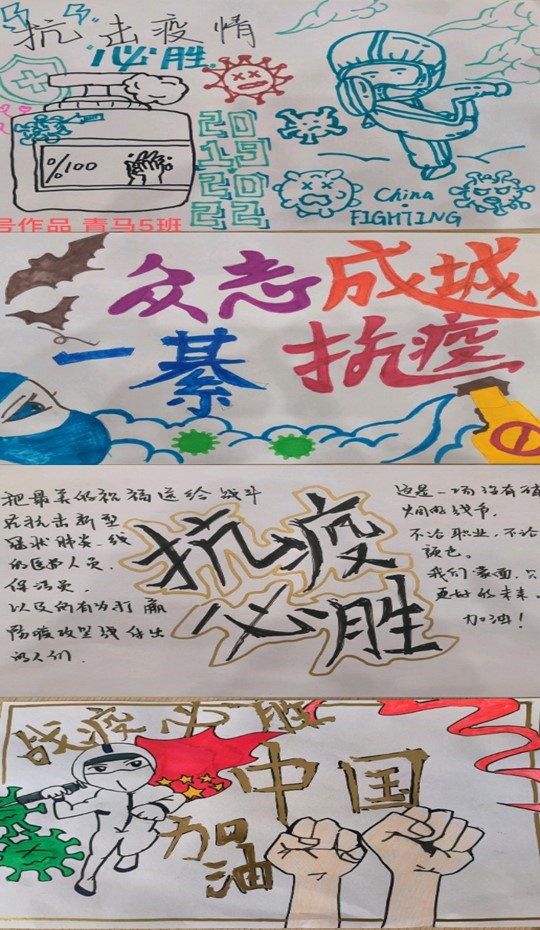 抗击疫情
必胜
%100
20
19
20
22
China
FIGHTING
号作品 青马5班
众志成城
一綦抗疫
把最美的祝福送给战斗
在抗击新型
冠状肺炎一线
的医务人员.
保洁员.
以及所有为打赢
防疫攻坚战付出
的人们.
抗疫
必胜
这是一场没有硝
烟的战争.
不论职业,不论
颜色.
我们蒙面,只
更好的未来.
加油!
战疫必胜
中国
加油